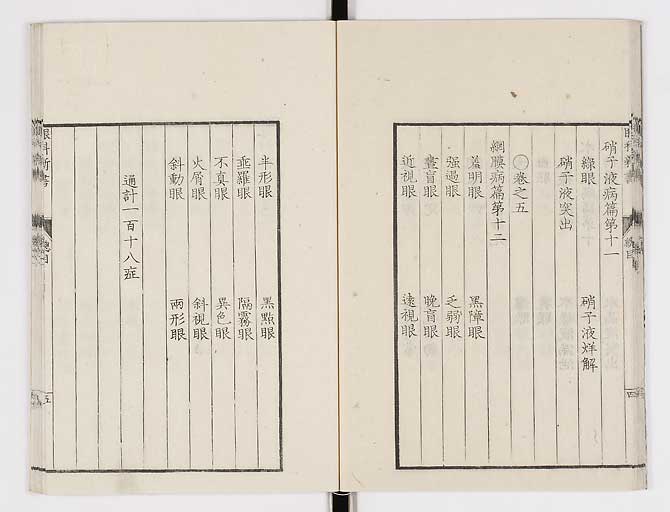 硝子液病篇第十一
綠眼
硝子液烊解
硝子液突出
卷之五
網膜病篇第十二
羞明眼
黑障眼
強過眼
乏弱眼
晝盲眼
晚盲眼
近視眼
遠視眼
半形眼
黑點眼
亜羅眼
隔霧眼
不真眼
異色眼
火屑眼
斜視眼
斜動眼
兩形眼
通計一百十八症
眼科新書
總目
五
四